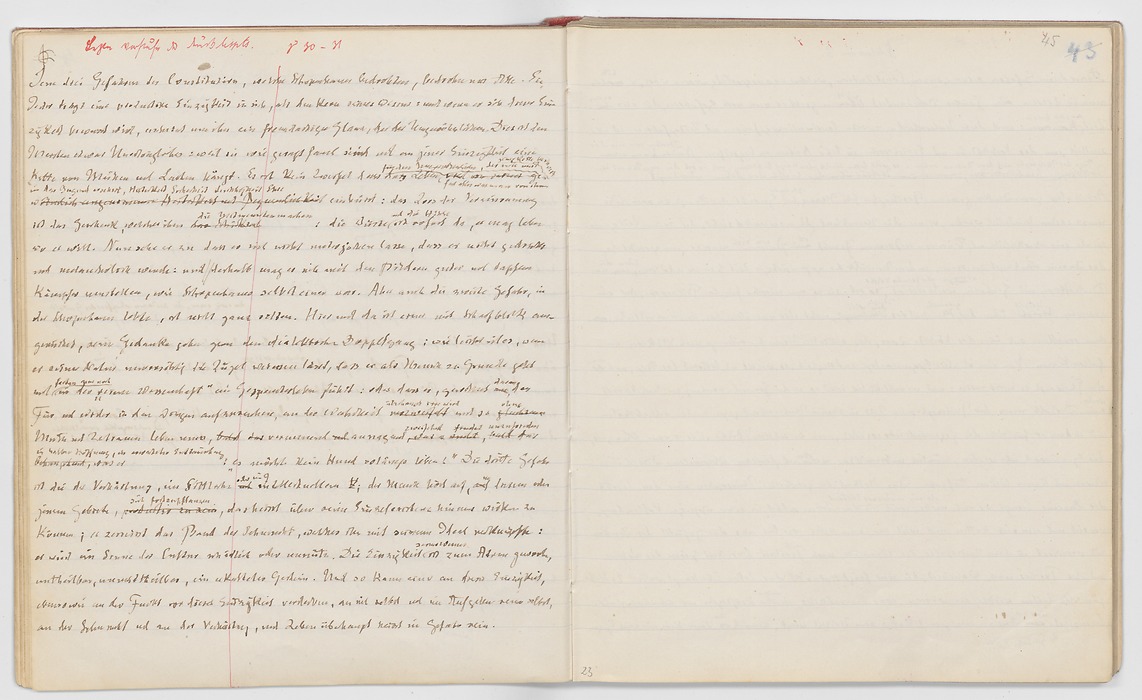 p 30 - 31
45
45
Jene drei Gefahren der Constitution, welche Schopenhauer bedrohten, bedrohen uns Alle. Ein
Jeder trägt eine productive Einzigkeit in sich, als den Kern seines Wesens: und wenn er sich dieser Ein
zigkeit bewusst wird, erscheint um ihn ein fremdartiger Glanz, der des Ungewöhnlichen. Dies ist den
Meisten etwas Unerträgliches: weil sie wie gesagt faul sind und an jener Einzigkeit eine
Kette von Mühen und Lasten hängt. Es ist kein Zweifel dass
für den Ungewöhnlichen, der sich mit dieser Kette beschwert
das Leben
fast alles was man von ihm
in der Jugend ersehnt, Heiterkeit Sicherheit Leichtigkeit Ehre
einbüsst: das Loos der Vereinsamung
ist das Geschenk, welches ihm
die Mitmenschen machen
: die Wüste
und die Höhle
ist sofort da, er mag leben
wo er will. Nun sehe er zu dass er sich nicht unterjochen lasse, dass er nicht gedrückt
und melancholisch werde: und deshalb mag er sich mit den Bildern guter und tapferer
Kämpfer umstellen, wie Schopenhauer selbst einer war. Aber auch die zweite Gefahr, in
der Schopenhauer lebte, ist nicht ganz selten. Hier und da ist einer mit Scharfblick aus
gerüstet, seine Gedanken gehen gern den dialektischen Doppelgang: wie leicht ist es, wenn
er seiner Natur unvorsichtig die Zügel schiessen lässt, dass er als Mensch zu Grunde geht
und
fast nur noch
in der "reinen Wissenschaft" ein Gespensterleben führt: oder dass er, gewohnt
daran
das
Für und Wider in den Dingen aufzusuchen, an der Wahrheit
überhaupt irre wird
und so
ohne
Muth und Zutrauen leben muss, verneinend und
zweifelnd
"es möchte kein Hund so länger leben!" Die dritte Gefahr
ist die der Verhärtung, im Sittlichen
oder im
Intellektuellen; der Mensch hört auf, auf diesem oder
jenem Gebiete,
sich fortzupflanzen
, das heisst über seine Einzelperson hinaus wirken zu
können; er zerreisst das Band der Sehnsucht, welches ihn mit seinem Ideal verknüpfte:
er wird im Sinne der Cultur schädlich oder unnütz. Die Einzigkeit
seines Wesens
ist zum Atom geworden,
untheilbar, unmittheilbar, ein erkaltetes Gestein. Und so kann einer an dieser Einzigkeit,
ebenso wie an der Furcht vor dieser Einzigkeit verderben, an sich selbst und im Aufgeben seiner selbst,
an der Sehnsucht und an der Verhärtung, und Leben überhaupt heisst in Gefahr sein.
23